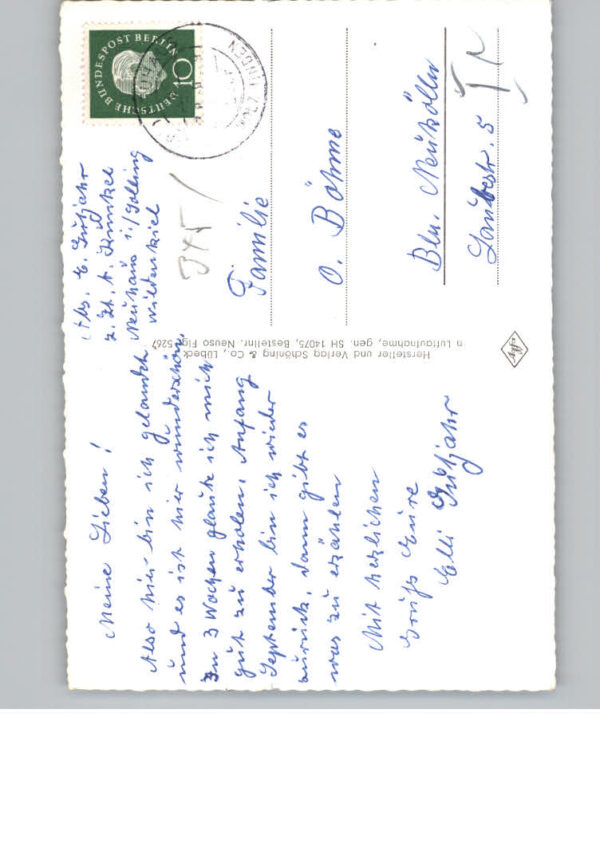 Meine Lieben!
Also hier bin ich gelandet
und es ist hier wunderschön
In 3 Wochen glaube ich mich
gut zu erholen, Anfang
September bin ich wieder
zurück, dann gibt es
was zu erzählen
Mit herzlichen
Gruß Eure
Elli Frühjahr
Abs. E. Frühjahr
z. Zt. A. Kunkel
Neuhaus i./Solling
Wildenkiel
DEUTSCHE BUNDESPOST BERLIN
10
Familie
O. Böhme
Bln. Neukölln
Laubestr. 5
Hersteller und Verlag Schöning & Co., Lübeck
n Luftaufnahme, gen. SH 14075, Bestellnr. Neuso Flg 5267